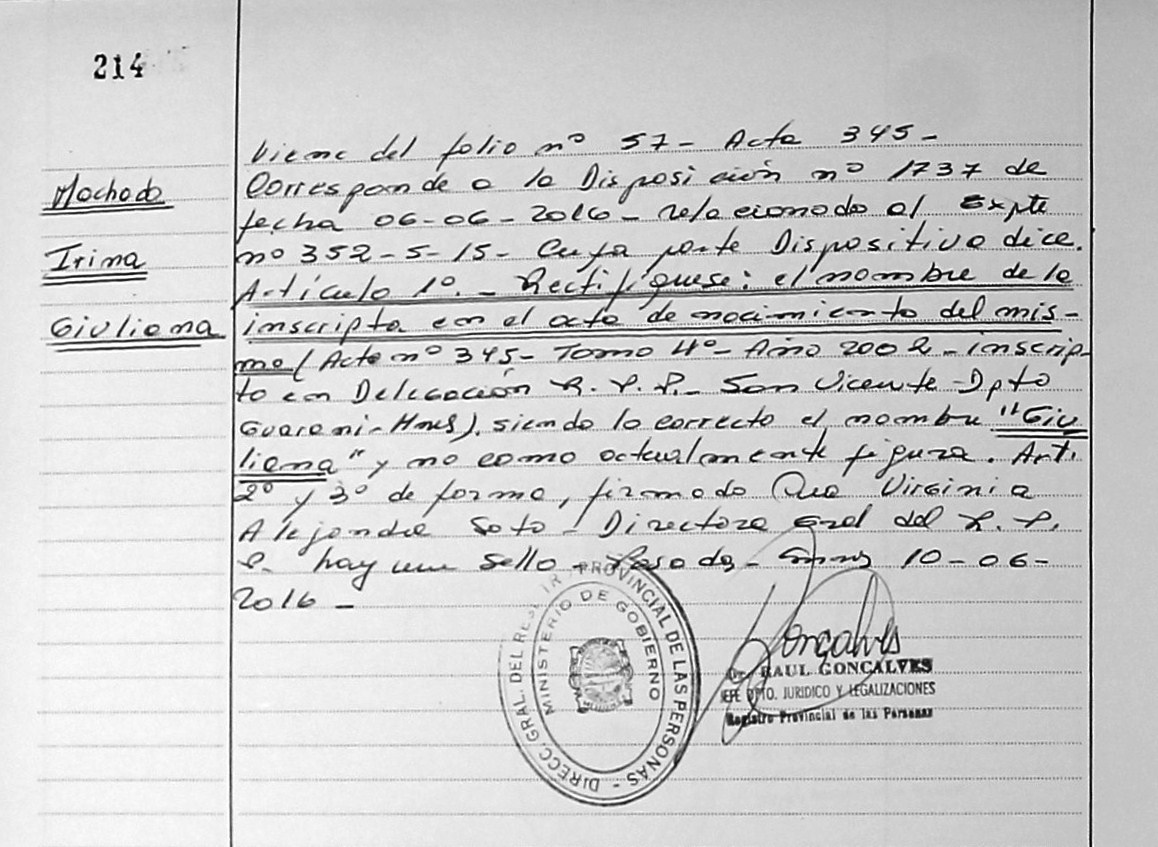 214
Machado
Irina
Giuliana
Viene del folio nº 57- Acta 345-
Corresponde a la Disposición nº 1737 de
fecha 06-06-2016- relacionado al Expte
nº 352-S-15- Cuya parte Dispositiva dice.
Artículo 1º.- Rectifíquese: el nombre de la
inscripta en el acta de nacimiento del mis-
mo (Acta nº 345- Tomo 4º- Año 2002- inscrip-
to en Delegación R.P.P.- San Vicente-Dpto
Guaraní-Mnes), siendo lo correcto el nombre "Giu
liana" y no como actualmente figura. Art.
2º y 3º de forma, firmado Dra Virginia
Alejandra Soto- Directora Gral del R. P.
P. hay un sello- Posadas- Mnes 10-06-
2016-
DIRECC. GRAL. DEL REG. PROVINCIAL DE LAS PERSONAS -
MINISTERIO DE GOBIERNO
Gonçalves
Dr. RAUL GONCALVES
JEFE DPTO. JURIDICO Y LEGALIZACIONES
Registro Provincial de las Personas